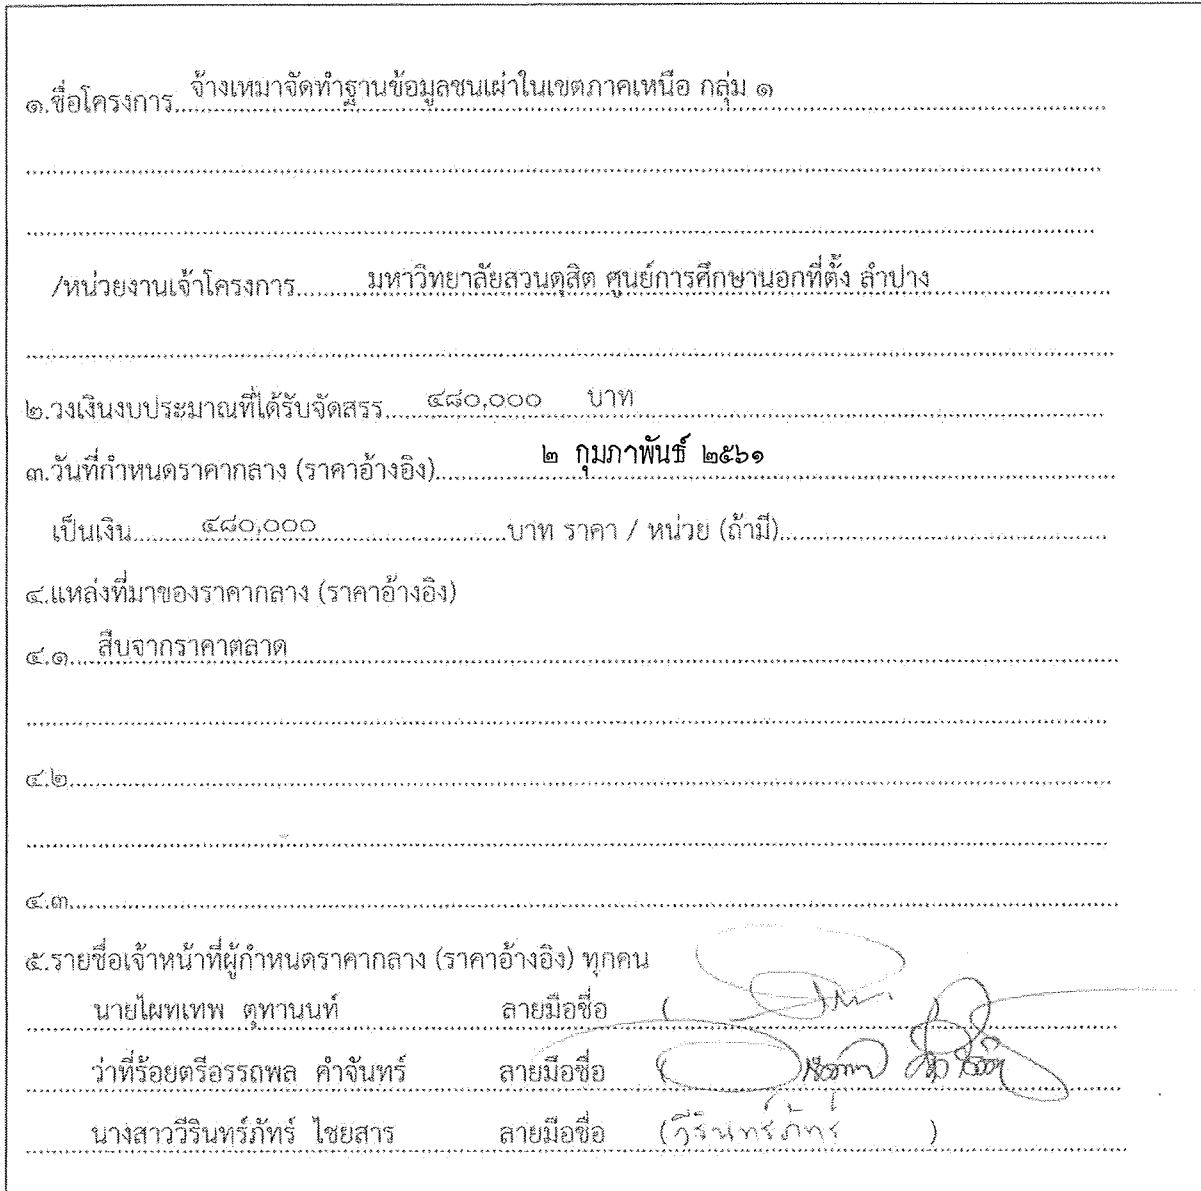 ๑.ชื่อโครงการ จ้างเหมาจัดทำฐานข้อมูลชนเผ่าในเขตภาคเหนือ กลุ่ม ๑
/หน่วยงานเจ้าโครงการ มหาวิทยาลัยสวนดุสิต ศูนย์การศึกษานอกที่ตั้ง ลำปาง
๒.วงเงินงบประมาณที่ได้รับจัดสรร ๔๘๐,๐๐๐ บาท
๓.วันที่กำหนดราคากลาง (ราคาอ้างอิง) ๒ กุมภาพันธ์ ๒๕๖๑
เป็นเงิน ๔๘๐,๐๐๐ บาท ราคา / หน่วย (ถ้ามี)
๔.แหล่งที่มาของราคากลาง (ราคาอ้างอิง)
๔.๑ สืบจากราคาตลาด
๔.๒
๔.๓
๕.รายชื่อเจ้าหน้าที่ผู้กำหนดราคากลาง (ราคาอ้างอิง) ทุกคน
นายไผทเทพ ตุทานนท์ ลายมือชื่อ (
ว่าที่ร้อยตรีอรรถพล คำจันทร์ ลายมือชื่อ (
นางสาววีรินทร์ภัทร์ ไชยสาร ลายมือชื่อ (วีรินทร์ภัทร์ )